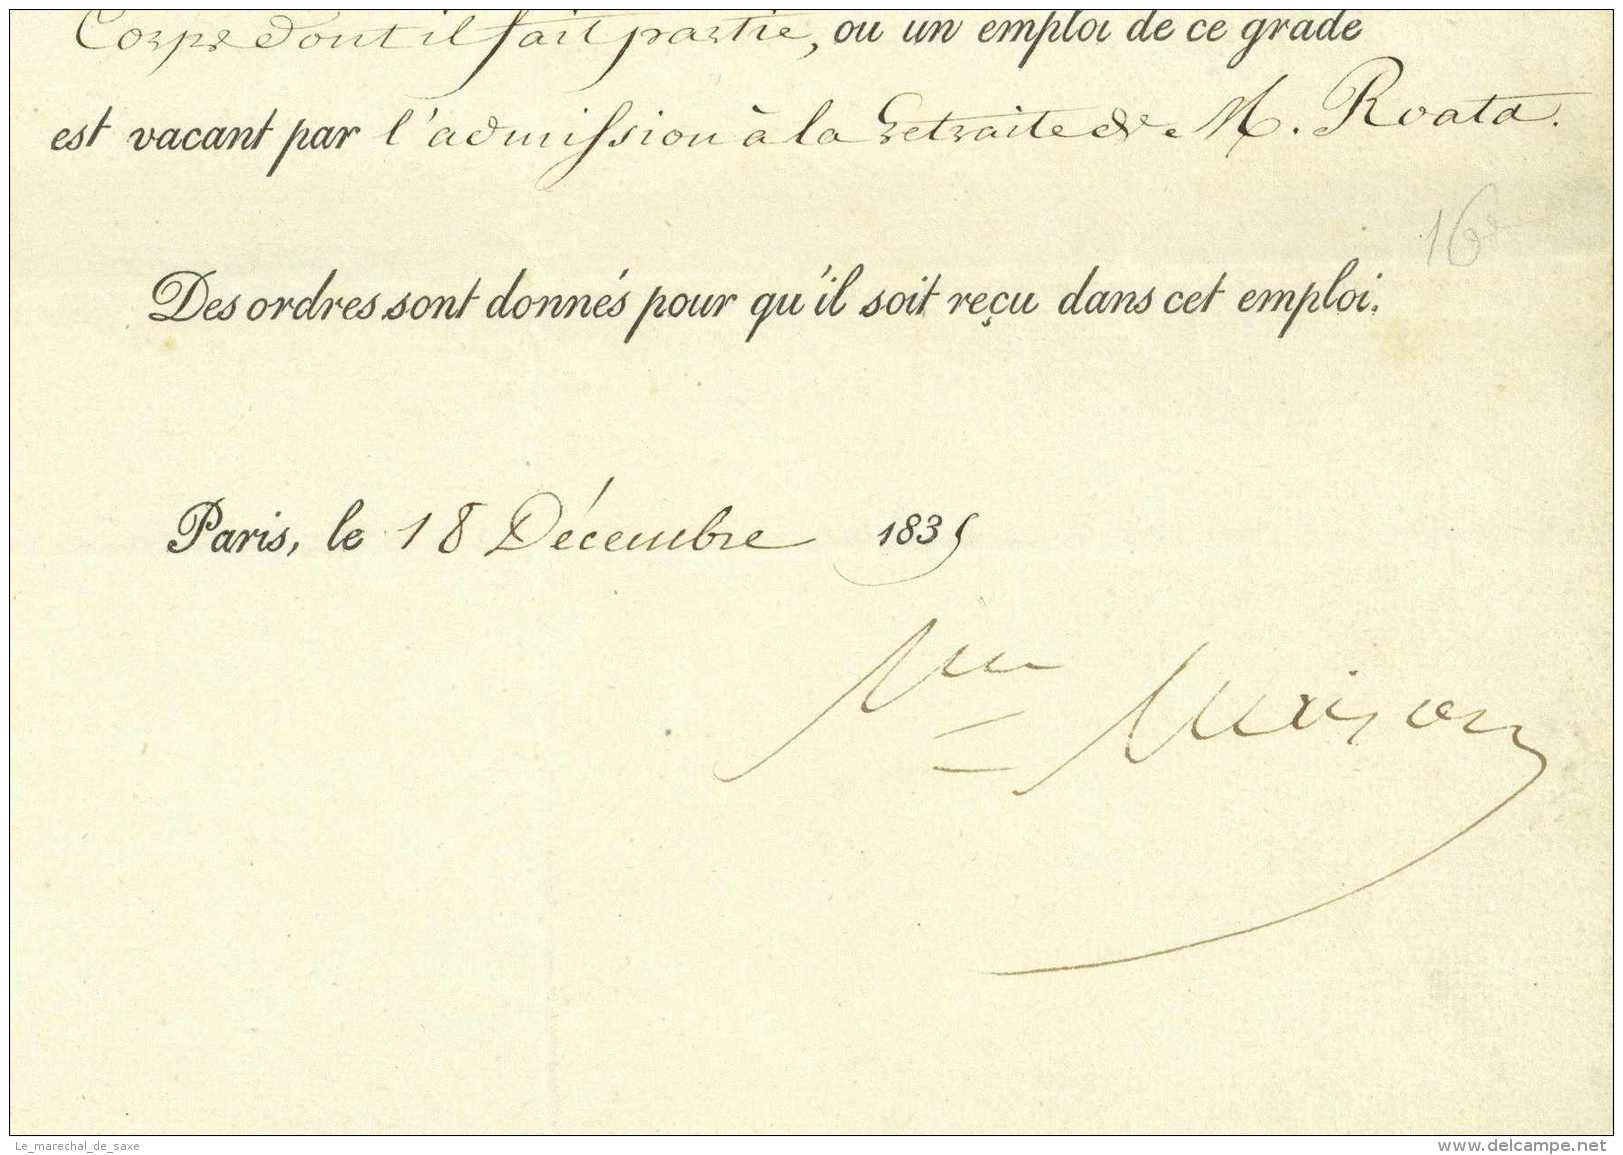 Corps dont il fait partie, ou un emploi de ce grade
est vacant par l'admission à la retraite de M. Roata.
16e
Des ordres sont donnés pour qu'il soit reçu dans cet emploi.
Paris, le 18 Décembre 1835
Mal Maison
Le_marechal_de_saxe
www.delcampe.net